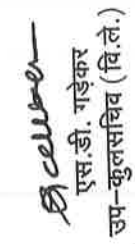 एस.डी. गडेकर
उप-कुलसचिव (वि.ले.)